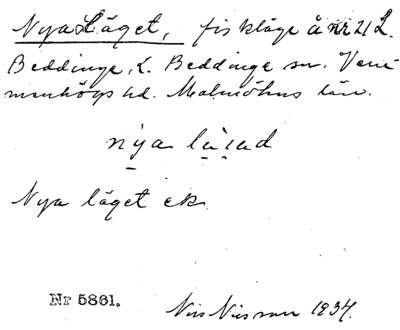 Nya Läget, fiskläge å nr 21 L.
Beddinge, L. Beddinge sn. Vem-
menhögs hd. Malmöhus län.
nya
Nya läget ek.
Nr 5861.
Nils Nilsson 1934.